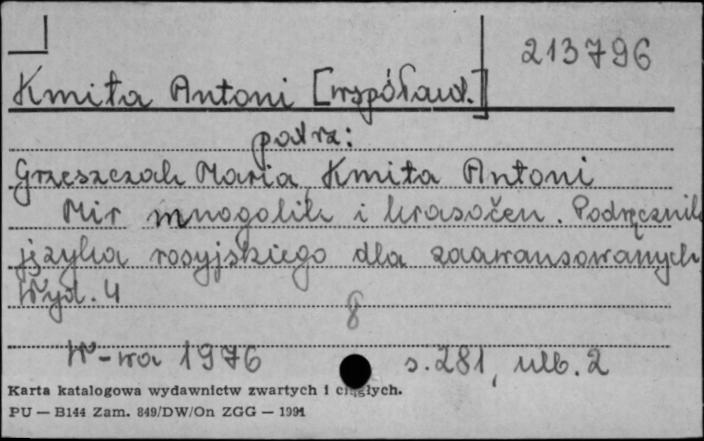 213796
Kmita Antoni [współaut.]
patrz:
Grzeszczak Maria, Kmita Antoni
Mir mnogolik i krasočen. Podręcznik
języka rosyjskiego dla zaawansowanych
Wyd. 4
8
W-wa 1976 s. 281, nlb. 2
Karta katalogowa wydawnictw zwartych i ciągłych.
PU — B144 Zam. 849/DW/On ZGG — 1991